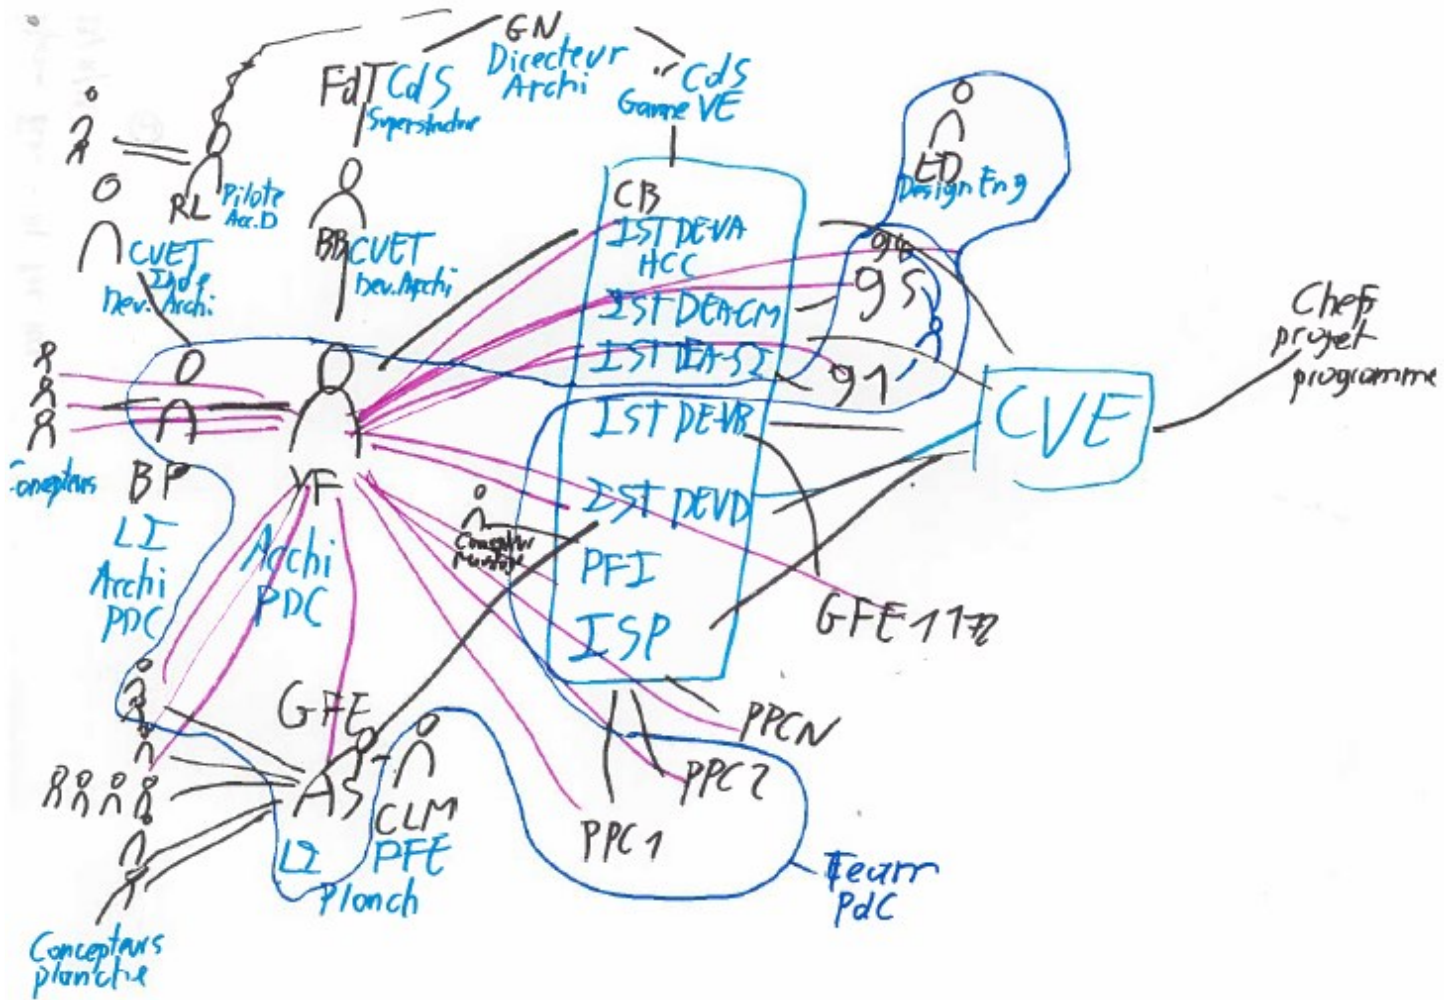 GN
Directeur
Archi
FdT CdS
Superstructur
CdS
Gamme VE
RL Pilote
Acc.D
CVET
Dev. Archi
BB CVET
Dev. Archi
ED
Design Eng
CB
IST DE-VA
HCC
IST DEA-CM
IST DEA-S2
IST DE-VB
IST DEVD
PFI
ISP
95
91
CVE
Chef
projet
programme
Concepteurs
BP
LI
Archi
PDC
YF
Archi
PDC
GFE
AS
LI
CLM
PFE
Planch
GFE 1172
PPCN
PPC2
PPC1
Team
PdC
Concepteurs
planche